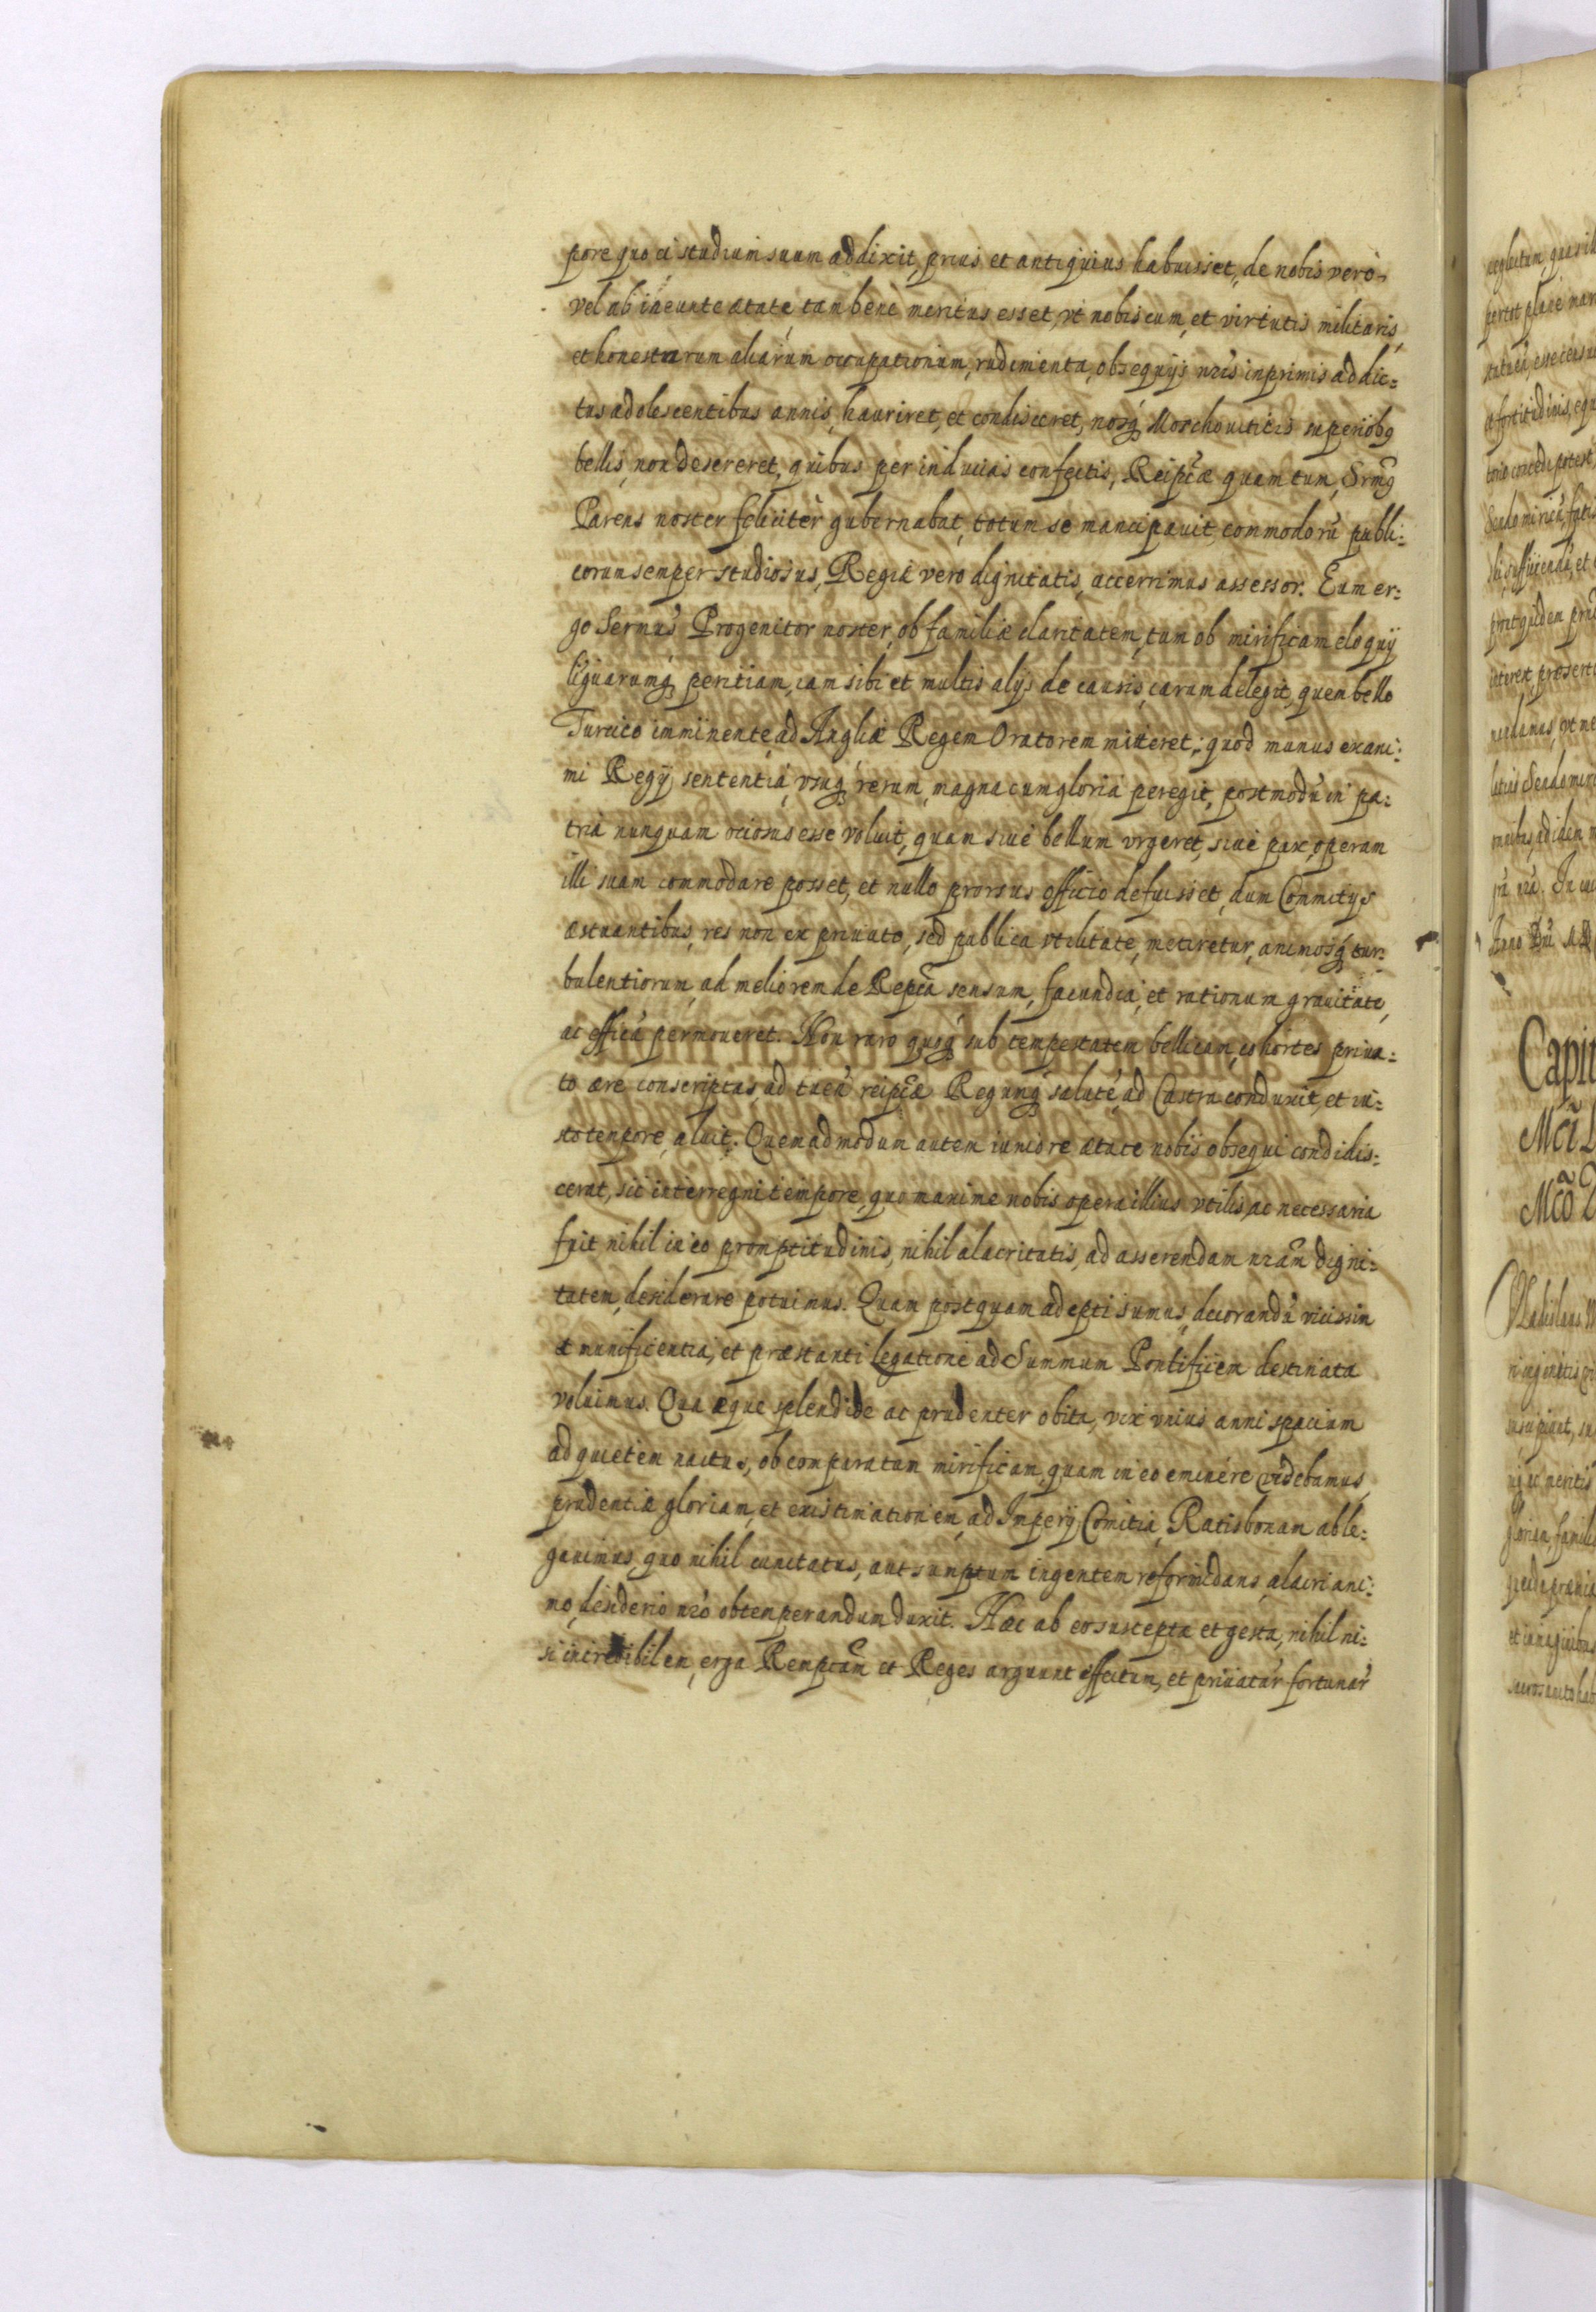 pore quo ei studium suum addixit, prius et antiquius habuisset, de nobis verò
vel ab ineunte ætate tam bene meritus esset, vt nobiscum, et virtutis militaris,
et honestarum aliarum occupationum, rudimenta, obsequijs nr̃is inprimis addic=
tus adolescentibus annis, hauriret, et condisceret, nosq́ Moschouiticis superiobq
bellis, non desereret, quibus per inducias confectis, Reipc̃æ quam tum, Srm̃q
Parens noster feliciter gubernabat, totum se mancipauit, commodorũ publi:
corum semper studiosus, Regiæ vero dignitatis, accerrimus assessor. Eum er:
go Sernũs Progenitor noster, ob familiæ claritatem, tum ob mirificam eloquij
liguarumq́ peritiam, iam sibi et multis alijs de causis, carum delegit, quem bello
Turcico imminente, ad Angliæ Regem Oratorem mitteret; quod munus ex ani:
mi Regij sententiá, vsuq́ rerum, magna cum gloriá peregit, postmodũ in pa:
triá nunquam ociosus esse voluit, quam siue bellum vrgeret, siue pax, operam
illi suam commodare posset, et nullo prorsus officio defuisset, dum Commitys
æstuantibus, res non ex priuato, sed publica vtilitate, metiretur, animosq́ tur:
bulentiorum, ad meliorem de Repc̃a sensum, facundiá, et rationum grauitate,
ac efficá permoueret. Non raro quoq́ sub tempestatem bellicam, cohortes priua:
to ære conscriptas, ad tueã reipc̃æ Regumq́ salutẽ, ad Castra conduxit, et iu:
sto tempore, aluit. Quemadmodum autem iuniore ætate nobis obsequi condidis:
cerat, sic interregni tempore, quo maxime nobis opera illius vtilis, ac necessaria
fuit nihil in eo promptitudinis, nihil alacritatis, ad asserendam nr̃am digni:
tatem, desiderare potuimus. Quam postquam adepti sumus, decorandũ vicissim
et munificentia, et præstanti legatione ad Summum Pontificem destinata
voluimus. Qua æque splendide ac prudenter obita, vix vnius anni spacium
ad quietem nactus, ob comparatam mirificam, quam in eo eminére videbamus,
prudentiæ gloriam, et existimationem, ad Imperij Comitia, Ratisbonam able:
gauimus, quo nihil cunctatus, aut sumptum ingentem reformidans, alacri ani:
mo, desiderio nr̃o obtemperandum duxit. Hæc ab eo suscepta et gesta, nihil ni:
si incredibilem, erga Rempc̃am et Reges arguunt affectum, et priuatar̃ fortunar̃